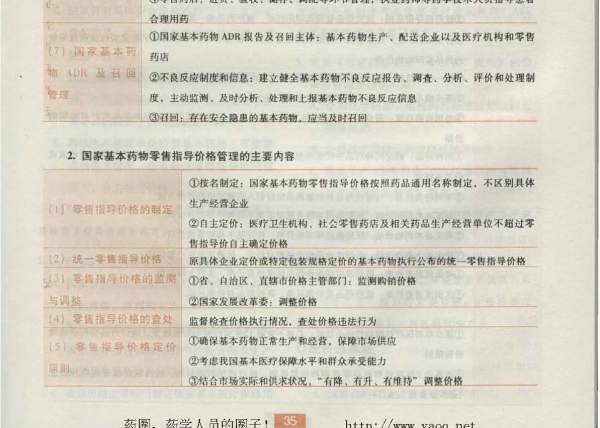 合理用药
(7) 国家基本药
物 ADR 及召回
管理
①国家基本药物 ADR 报告及召回主体：基本药物生产、配送企业以及医疗机构和零售
药店
②不良反应制度和信息：建立健全基本药物不良反应报告、调查、分析、评价和处理制
度，主动监测、及时分析、处理和上报基本药物不良反应信息
③召回：存在安全隐患的基本药物，应当及时召回
2. 国家基本药物零售指导价格管理的主要内容
(1) 零售指导价格的制定
①按名制定：国家基本药物零售指导价格按照药品通用名称制定，不区别具体
生产经营企业
②自主定价：医疗卫生机构、社会零售药店及相关药品生产经营单位不超过零
售指导价自主确定价格
(2) 统一零售指导价格
原具体企业定价或特定包装规格定价的基本药物执行公布的统一零售指导价格
(3) 零售指导价格的监测
与调整
①省、自治区、直辖市价格主管部门：监测购销价格
②国家发展改革委：调整价格
(4) 零售指导价格的查处
监督检查价格执行情况，查处价格违法行为
(5) 零售指导价格定价
原则
①确保基本药物正常生产和经营，保障市场供应
②考虑我国基本医疗保障水平和群众承受能力
③结合市场实际和供求状况，“有降、有升、有维持”调整价格
药圈，药学人员的圈子！ 35 http://www.yaoq.net